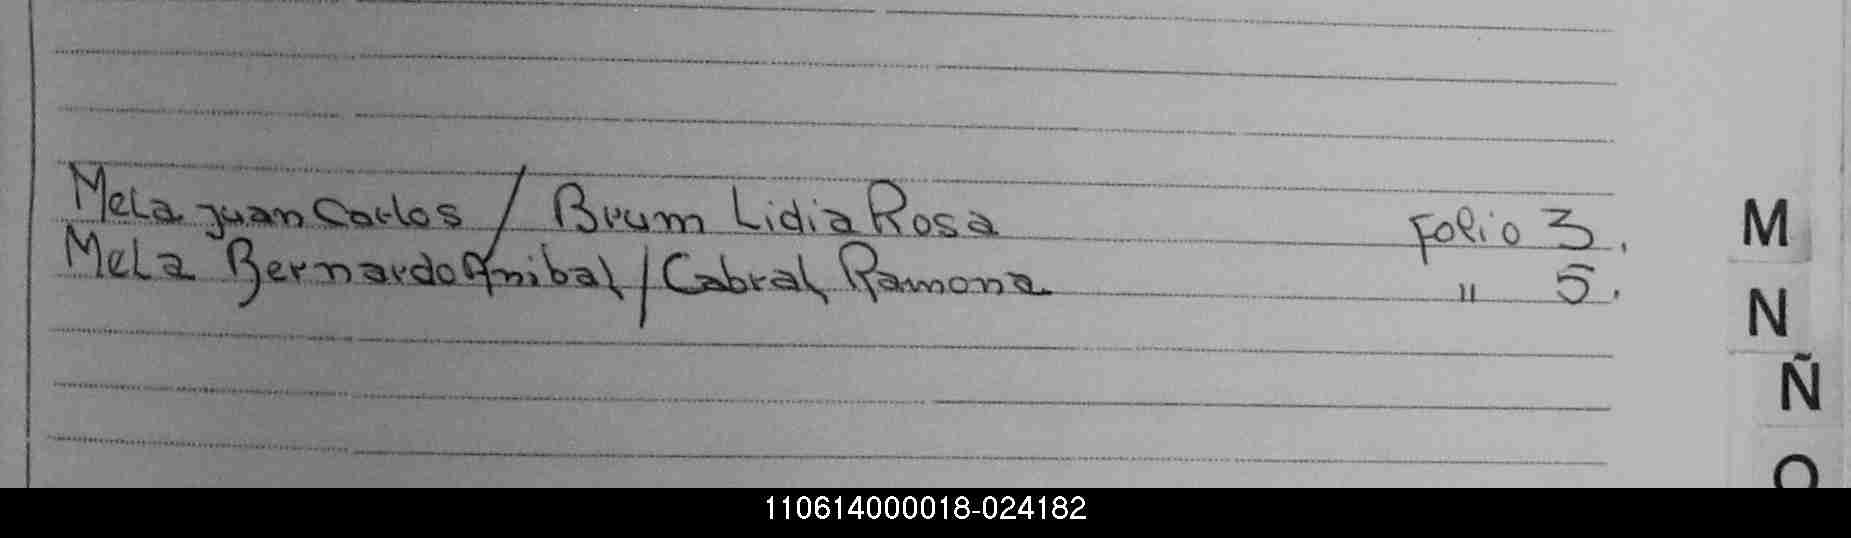 Mela Juan Carlos / Brum Lidia Rosa Folio 3.
Mela Bernardo Anibal / Cabral Ramona " 5.
M
N
Ñ
O
110614000018-024182